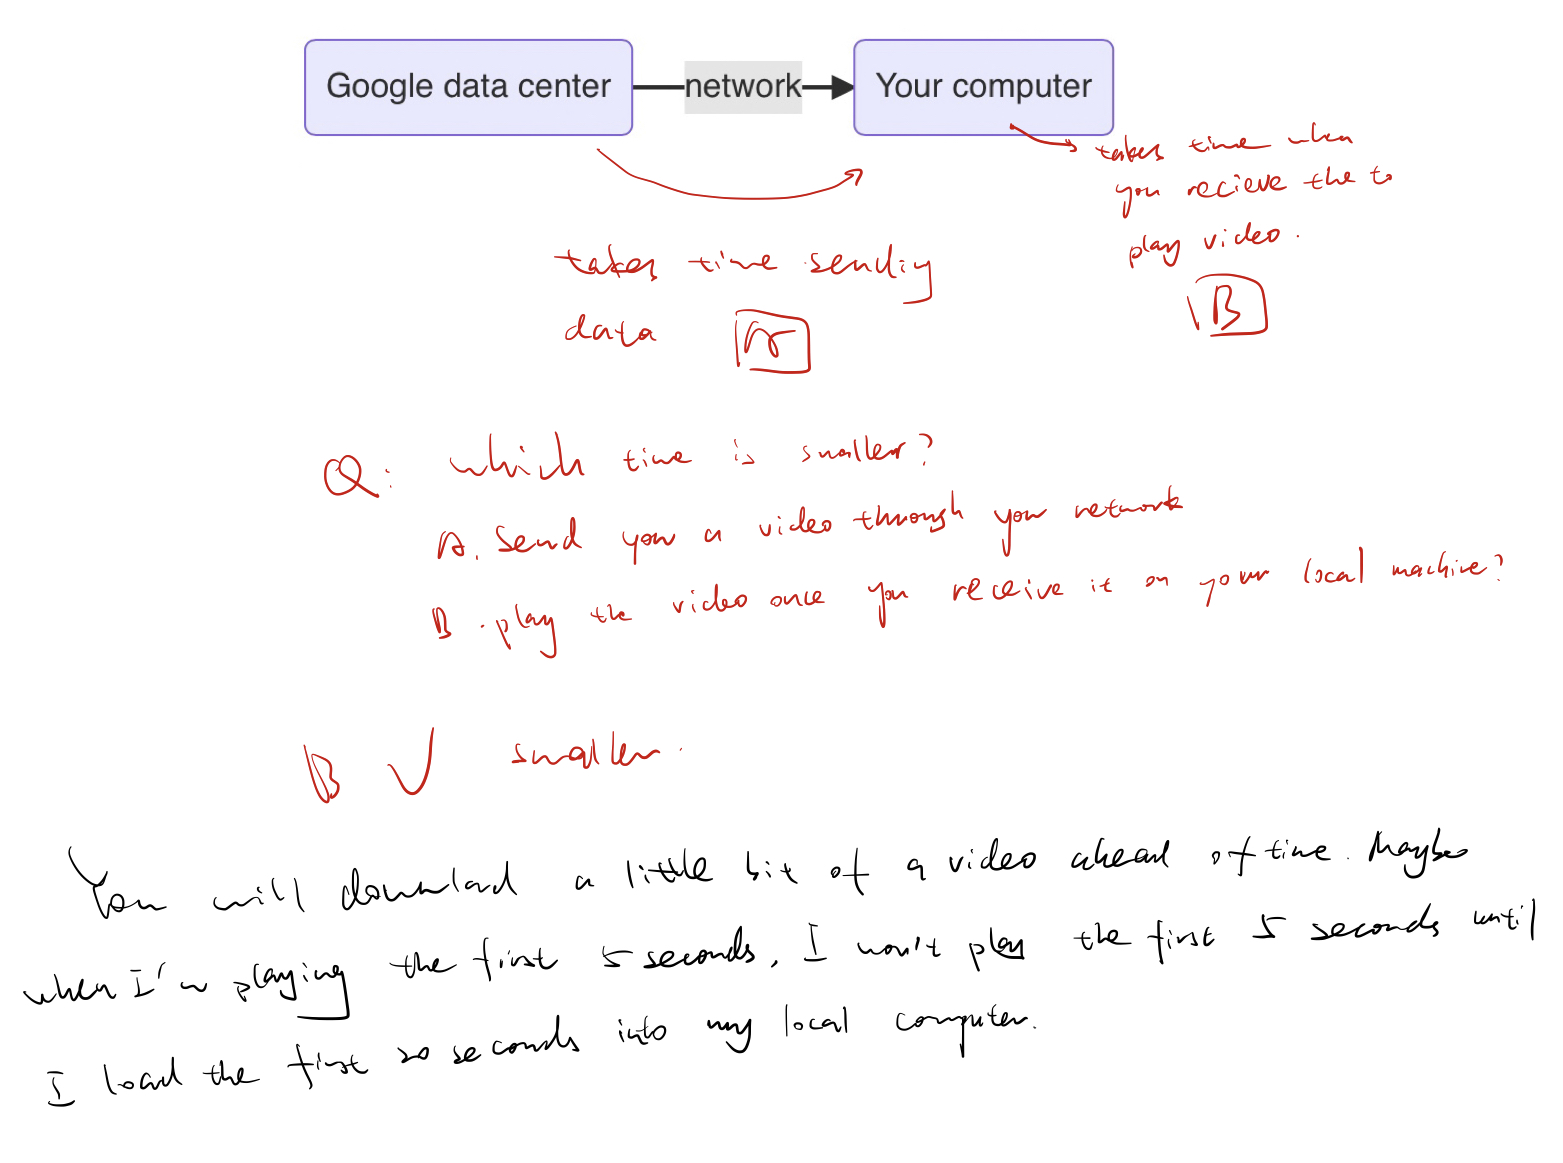 Google data center
network
Your computer
takes time when
you recieve the to
play video.
B
takes time sending
data A
Q: which time is smaller?
A. Send you a video through your network
B. play the video once you receive it on your local machine?
B ✓ smaller.
You will download a little bit of a video ahead of time. Maybe
when I'm playing the first 5 seconds, I won't play the first 5 seconds until
I load the first 20 seconds into my local computer.